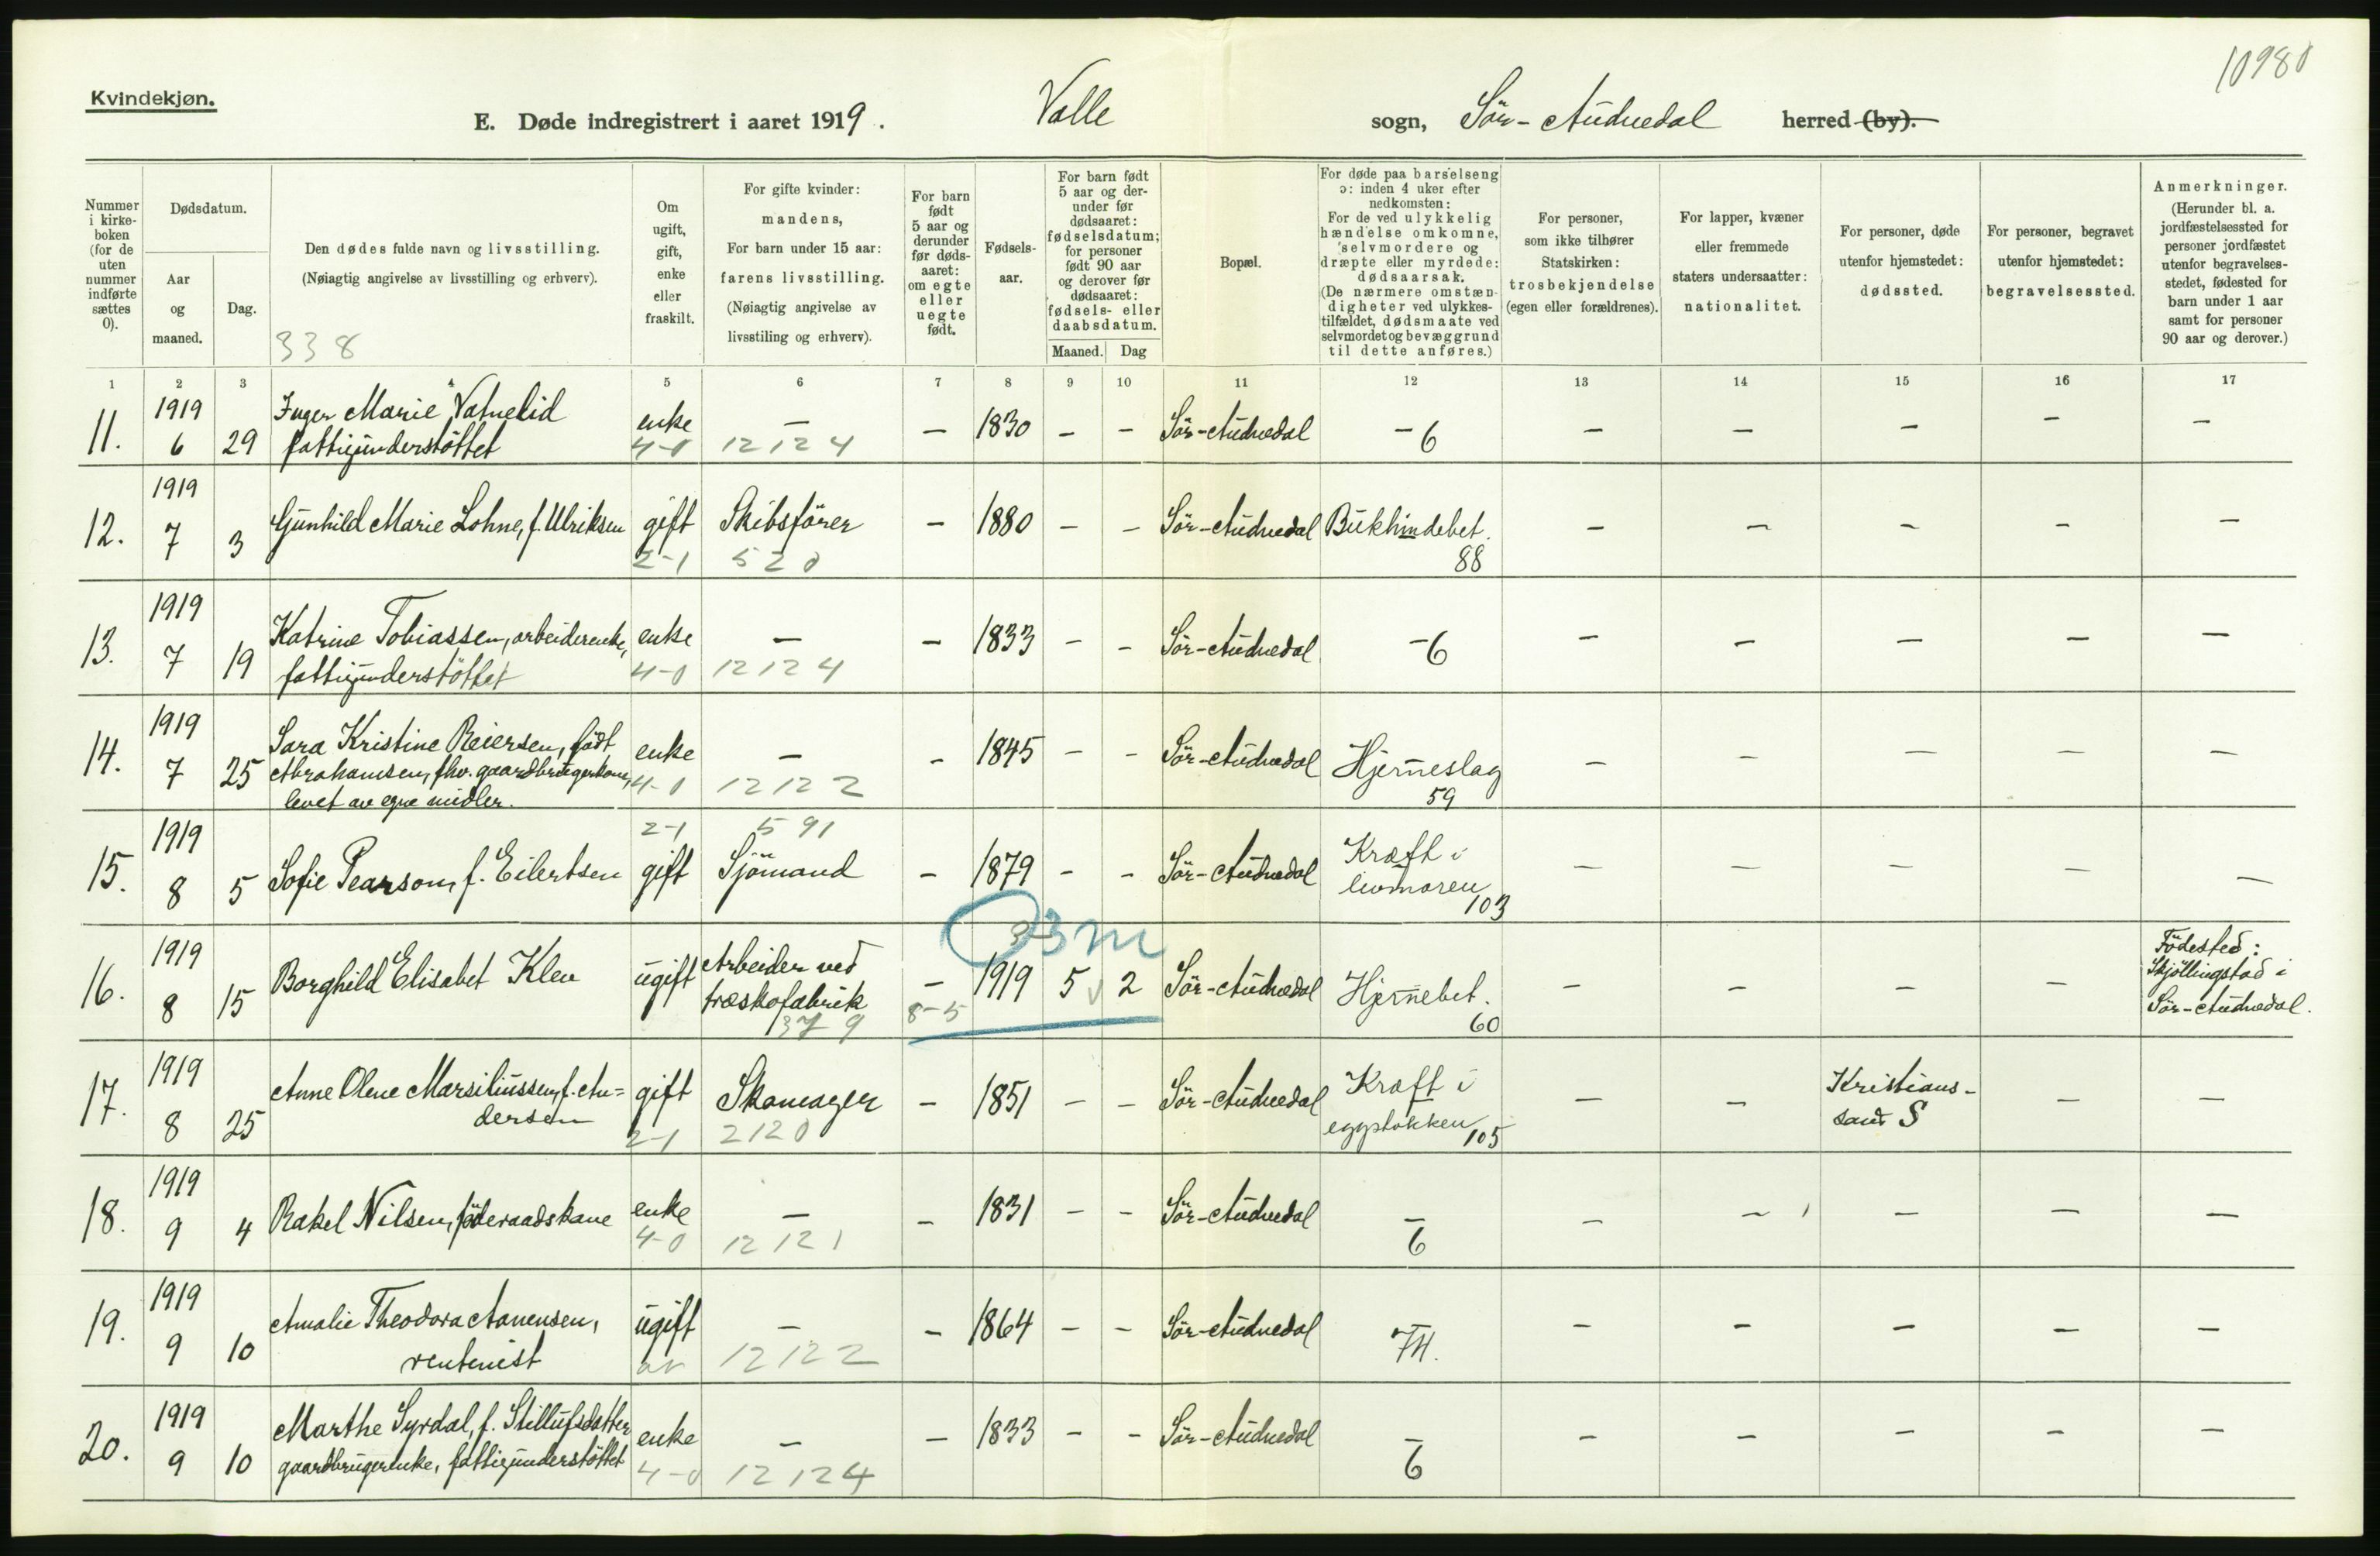 10980
Kvindekjøn.
E. Døde indregistrert i aaret 1919. Valle sogn, Sör-Audnedal herred (by).
Nummer i kirke-boken (for de uten nummer indførte sættes 0).
Dødsdatum.
Aar og maaned.
Dag.
Den dødes fulde navn og livsstilling.
(Nøiagtig angivelse av livsstilling og erhverv).
338
Om ugift, gift, enke eller fraskilt.
For gifte kvinder: mandens,
For barn under 15 aar: farens livsstilling.
(Nøiagtig angivelse av livsstiling og erhverv).
For barn født 5 aar og derunder før døds-aaret: om egte eller uegte født.
Fødsels-aar.
For barn født 5 aar og der-under før dødsaaret: fødselsdatum; for personer født 90 aar og derover før dødsaaret: fødsels- eller daabsdatum.
Maaned. Dag
Bopæl.
For døde paa barselseng ɔ: inden 4 uker efter nedkomsten:
For de ved ulykkelig hændelse omkomne, selvmordere og dræpte eller myrdede: dødsaarsak.
(De nærmere omstæn-digheter ved ulykkes-tilfældet, dødsmaate ved selvmordet og bevæggrund til dette anføres.)
For personer, som ikke tilhører Statskirken: trosbekjendelse (egen eller forældrenes).
For lapper, kvæner eller fremmede staters undersaatter: nationalitet.
For personer, døde utenfor hjemstedet: dødssted.
For personer, begravet utenfor hjemstedet: begravelsessted.
Anmerkninger.
(Herunder bl. a. jordfæstelsessted for personer jordfæstet utenfor begravelses-stedet, fødested for barn under 1 aar samt for personer 90 aar og derover.)
1 2 3 4 5 6 7 8 9 10 11 12 13 14 15 16 17
11. 1919 6 29 Inger Marie Vatnelid fattigunderstöttet enke 4-0 – 12 12 4 – 1830 – – Sör-Audnedal – 6 – – – – –
12. 1919 7 3 Gunhild Marie Lohne, f. Ulriksen gift 2-1 Skibsförer 5 2 0 – 1880 – – Sör-Audnedal Bukhindebet. 88 – – – – –
13. 1919 7 19 Katrine Tobiassen, arbeiderenke, fattigunderstöttet enke 4-0 – 12 12 4 – 1833 – – Sör-Audnedal – 6 – – – – –
14. 1919 7 25 Sara Kristine Reiersen, född Abrahamsen, fhv. gaardbrugerkone, levet av egne midler. enke 4-0 – 12 12 2 – 1845 – – Sör-Audnedal Hjerneslag 59 – – – – –
15. 1919 8 5 Sofie Pearson, f. Eilertsen 2-1 gift 5 91 Sjömand – 1879 – – Sör-Audnedal Kræft i livmoren 103 – – – – –
16. 1919 8 15 Borghild Elisabet Klev ugift Arbeider ved træskofabrik 37 9 – 8-5 3m 1919 5 2 Sör-Audnedal Hjernebet. 60 – – – – Födested: Skjöllingstad i Sör-Audnedal.
17. 1919 8 25 Anne Olene Marsiliussen, f. An=dersen gift 2-1 Skomager 2 12 0 – 1851 – – Sör-Audnedal Kræft i eggstokken 105 – – Kristians-sand S – –
18. 1919 9 4 Rakel Nilsen, föderaadskone enke 4-0 – 12 12 1 – 1831 – – Sör-Audnedal – 6 – – – – –
19. 1919 9 10 Amalie Theodora Aanensen, rentenist ugift – 12 12 2 – 1864 – – Sör-Audnedal – 74. – – – – –
20. 1919 9 10 Marthe Syrdal, f. Stillufsdatter gaardbrugerenke, fattigunderstöttet enke 4-0 – 12 12 4 – 1833 – – Sör-Audnedal – 6 – – – – –